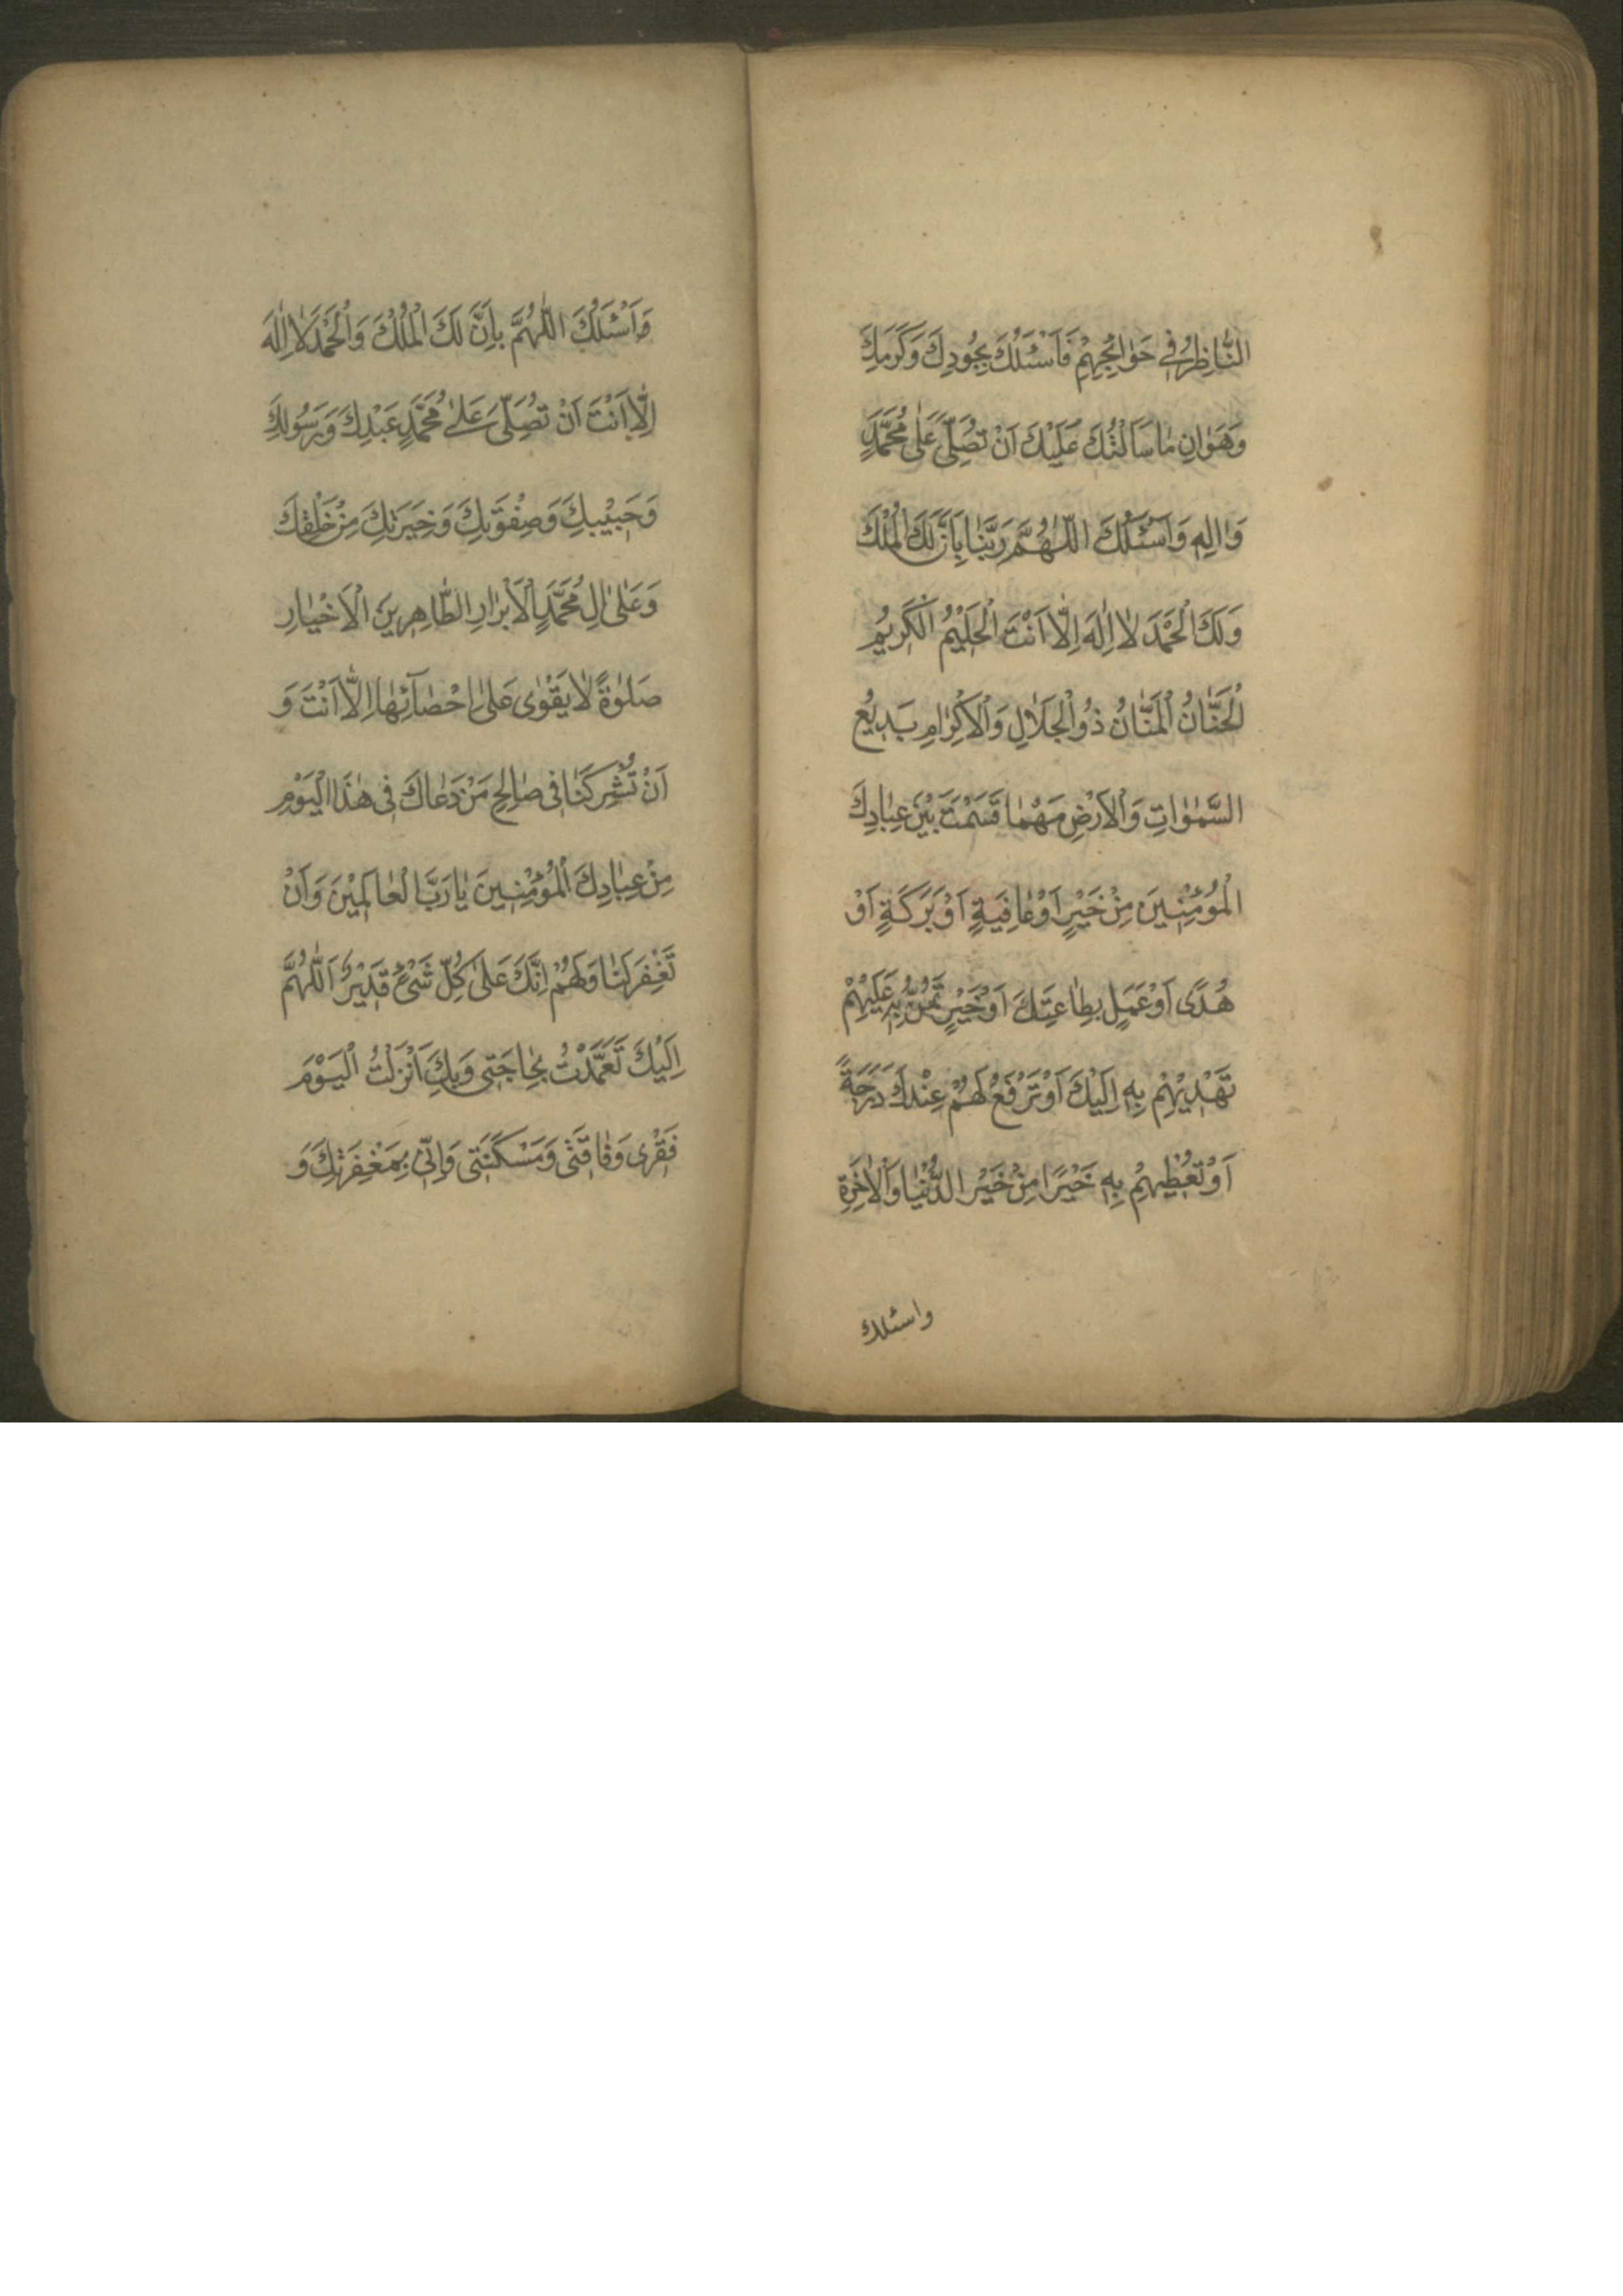 النَّاظِرُ فِي حَوٰائِجِهِمْ فَاَسْئَلُكَ بِجُودِكَ وَكَرَمِكَ
وَهَوٰانِ مٰا سَاَلْتُكَ عَلَيْكَ اَنْ تُصَلِّيَ عَلٰى مُحَمَّدٍ
وَاٰلِهِ وَاَسْئَلُكَ اللّٰهُمَّ رَبَّنٰا بِاَنَّ لَكَ الْمُلْكَ
وَلَكَ الْحَمْدَ لٰا اِلٰهَ اِلّٰا اَنْتَ الْحَلِيْمُ الْكَرِيْمُ
الْحَنّٰانُ الْمَنّٰانُ ذُو الْجَلٰالِ وَالْاِكْرٰامِ بَدِيْعُ
السَّمٰوٰاتِ وَالْاَرْضِ مَهْمٰا قَسَمْتَ بَيْنَ عِبٰادِكَ
الْمُؤْمِنِينَ مِنْ خَيْرٍ اَوْ عٰافِيَةٍ اَوْ بَرَكَةٍ اَوْ
هُدًى اَوْ عَمَلٍ بِطٰاعَتِكَ اَوْ خَيْرٍ تَمُنُّ بِهِ عَلَيْهِمْ
تَهْدِيْهِمْ بِهِ اِلَيْكَ اَوْ تَرْفَعُ لَهُمْ عِنْدَكَ دَرَجَةً
اَوْ تُعْطِيهِمْ بِهِ خَيْرًا مِنْ خَيْرِ الدُّنْيٰا وَالْاٰخِرَةِ
واسئلك
وَاَسْئَلُكَ اللّٰهُمَّ بِاَنَّ لَكَ الْمُلْكَ وَالْحَمْدَ لٰا اِلٰهَ
اِلّٰا اَنْتَ اَنْ تُصَلِّيَ عَلٰى مُحَمَّدٍ عَبْدِكَ وَرَسُولِكَ
وَحَبِيْبِكَ وَصِفْوَتِكَ وَخِيَرَتِكَ مِنْ خَلْقِكَ
وَعَلٰى اٰلِ مُحَمَّدٍ الْاَبْرٰارِ الطّٰاهِرِينَ الْاَخْيٰارِ
صَلٰوةً لٰا يَقْوٰى عَلٰى اِحْصٰآئِهٰا اِلّٰا اَنْتَ وَ
اَنْ تُشْرِكَنٰا فِى صٰالِحِ مَنْ دَعٰاكَ فِى هٰذَا الْيَوْمِ
مِنْ عِبٰادِكَ الْمُؤْمِنِينَ يٰا رَبَّ الْعٰالَمِيْنَ وَاَنْ
تَغْفِرَ لَنٰا وَلَهُمْ اِنَّكَ عَلٰى كُلِّ شَىْءٍ قَدِيْرٌ اَللّٰهُمَّ
اِلَيْكَ تَعَمَّدْتُ بِحٰاجَتِى وَبِكَ اَنْزَلْتُ الْيَوْمَ
فَقْرِى وَفٰاقَتِى وَمَسْكَنَتِى وَاِنِّى بِمَغْفِرَتِكَ وَ